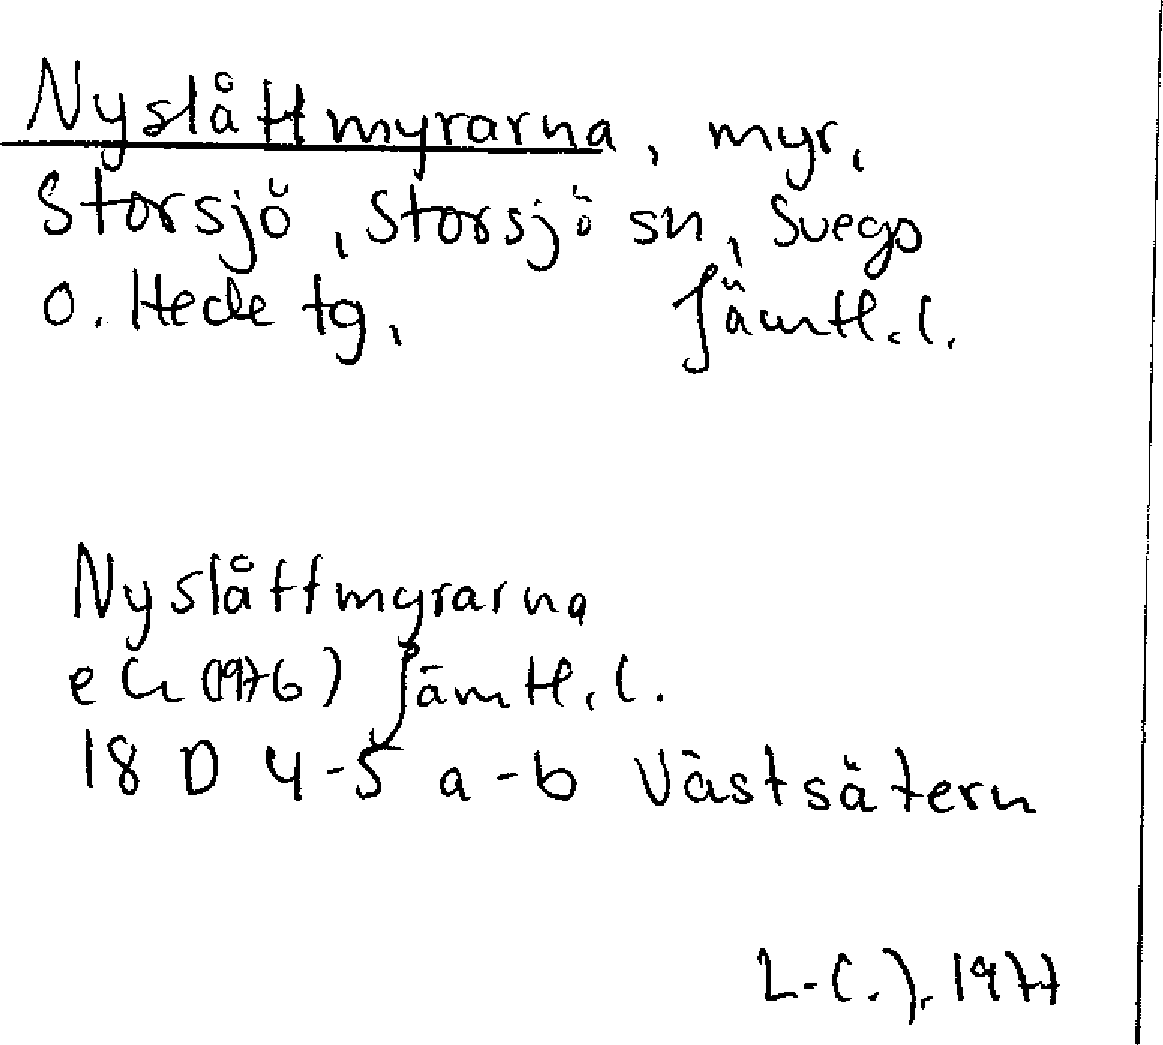 Nyslåttmyrarna, myr,
Storsjö, Storsjö sn, Svegs
o. Hede tg, Jämtl.l.
Nyslåttmyrarna
ek (1976) Jämtl.l.
18 D 4-5 a-b Västsätern
L-C.J. 1977